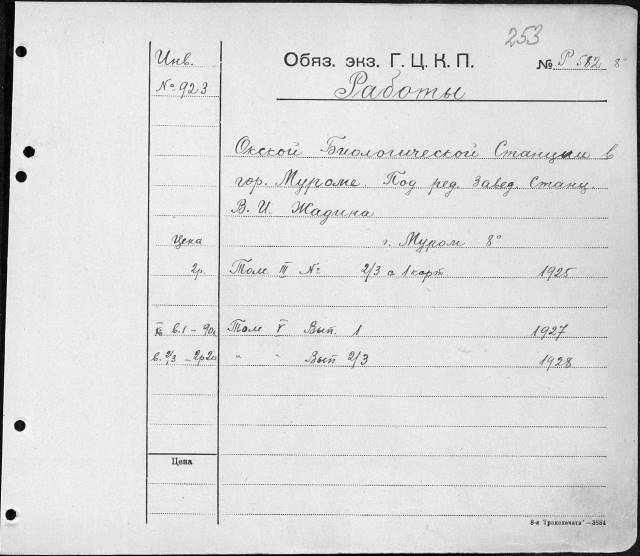 253
Инв.
№ 923
Обяз. экз. Г. Ц. К. П.
№ Р 582 8°
Работы
Окской Биологической Станции в
гор. Муроме. Под ред. Завед. Станц.
В. И. Жадина
Цена г. Муром 8°
2р. Том III № 2/3 с 1 карт 1925
в. 1 – 90к Том V Вып. 1 1927
в. 2/3 – 2р20 " " Вып 2/3 1928
Цена
8-я "Транспечать" — 3684